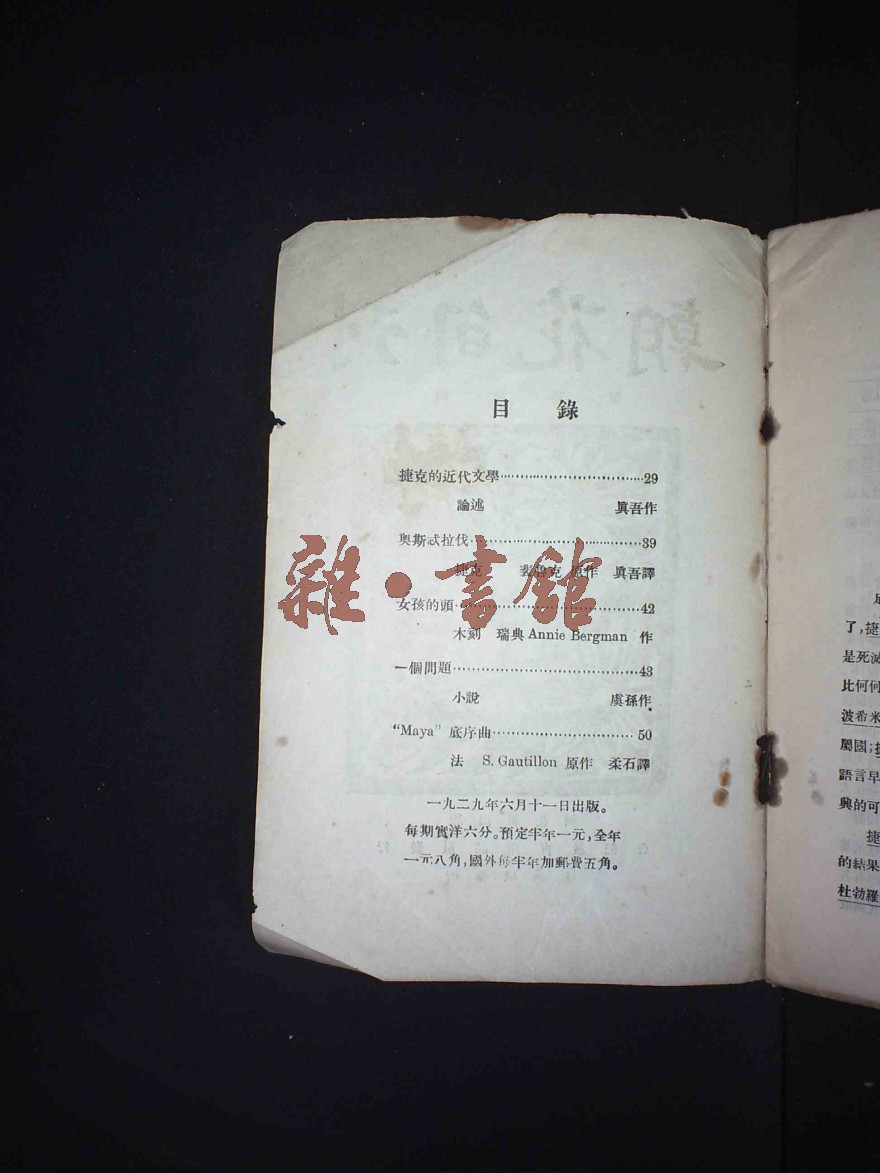 朝花旬刊
目錄
捷克的近代文學……29
論述 眞吾作
奧斯忒拉伐……39
捷克 裴魯克 原作 眞吾譯
女孩的頭……42
木刻 瑞典 Annie Bergman 作
一個問題……43
小說 虞孫作
“Maya” 底序曲……50
法 S. Gautillon 原作 柔石譯
一九二九年六月十一日出版。
每期實洋六分。預定半年一元,全年
一元八角,國外每半年加郵費五角。
雜·書館
了,捷
是死滅
比何何
波希米
屬國;
語言早
興的可
捷
的結果
杜勃羅